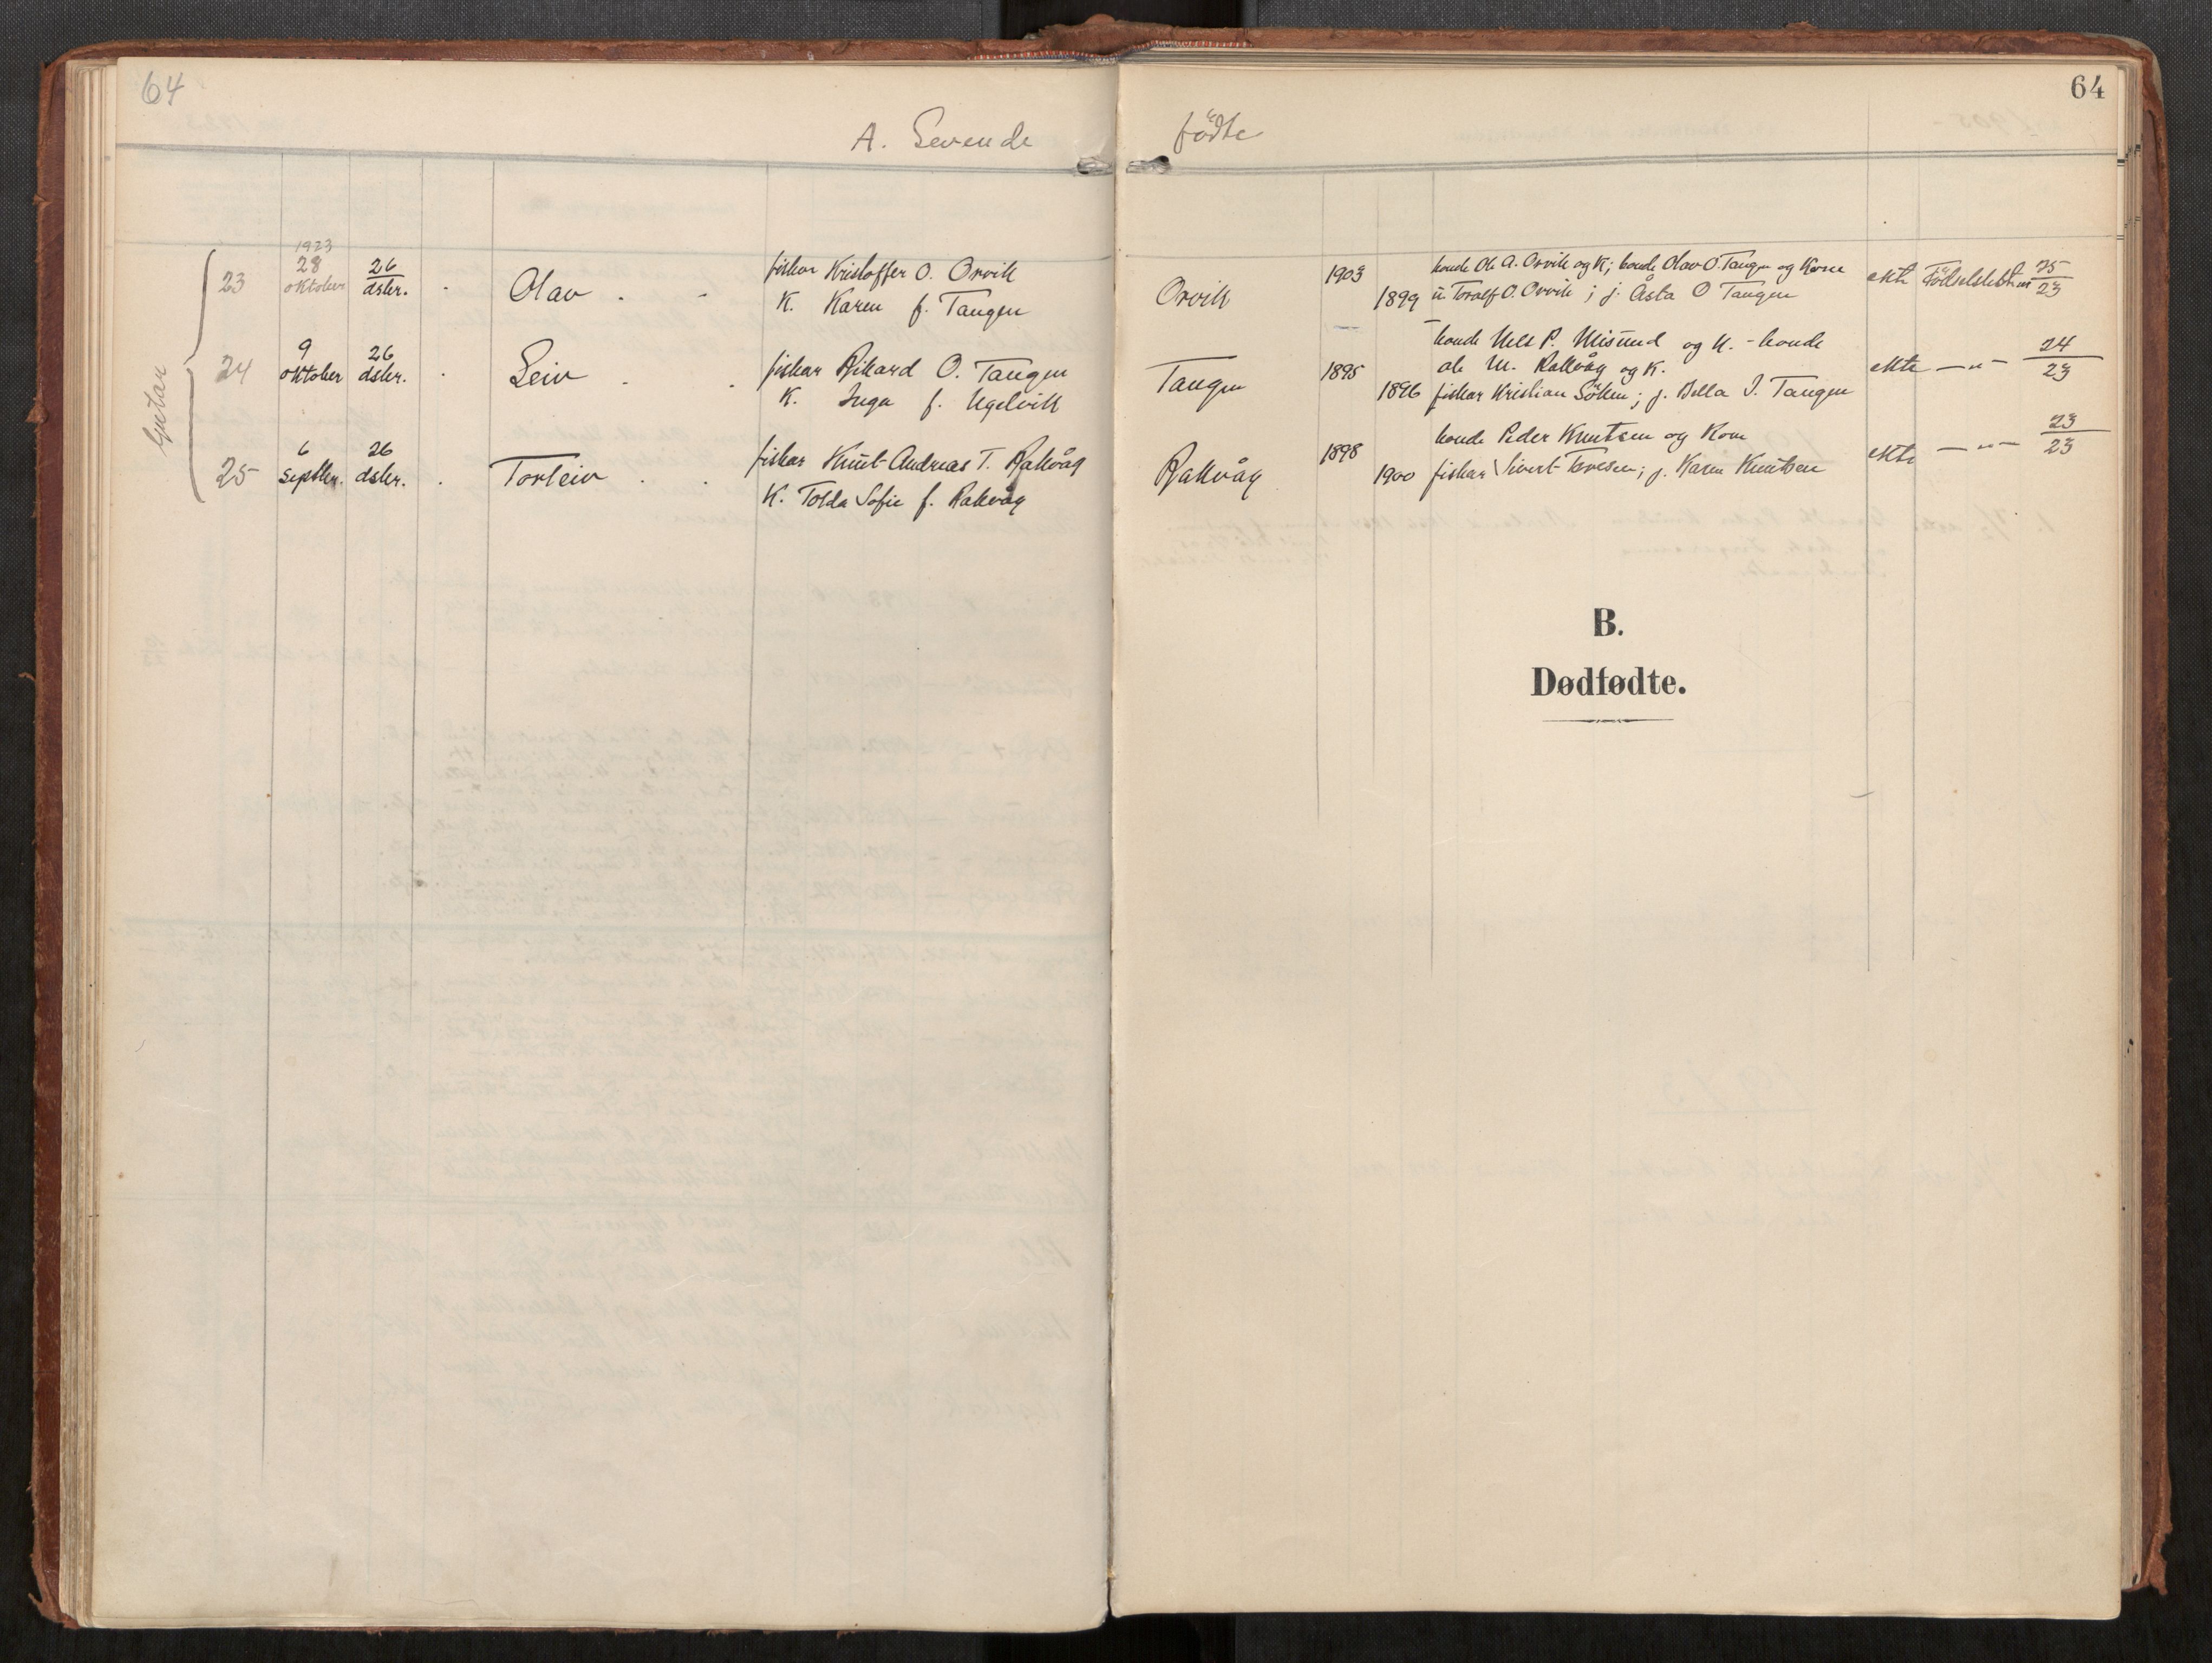 64
64
A. Levende fødte
Gutar
1923
23 28 oktober 26 dsbr. Olav fiskar Kristoffer O. Orvik
K. Karen f. Tangen
Orvik 1903 1899 bonde Ole A. Orvik og K; bonde Olav O. Tangen og Kone
u Toralf O. Orvik ; j. Åsta O Tangen
ekte Fødselslistenr 25/23
24 9 oktober 26 dsbr. Leiv fiskar Rikard O. Tangen
K. Inga f. Ugelvik
Tangen 1895 1896 bonde Nels P. Misund og K. - bonde
Ole M. Rakvåg og K.
fiskar Kristian Söken; j. Bella I. Tangen
ekte — „ — 24/23
25 6 septbr. 26 dsbr. Torleiv fiskar Knut-Andreas T. Rakvåg
K. Tolda Sofie f. Rakvåg
Rakvåg 1898 1900 bonde Peder Knutsen og Kone
fiskar Sivert Toresen; j. Karen Knutsen
ekte — „ — 23/23
B.
Dødfødte.